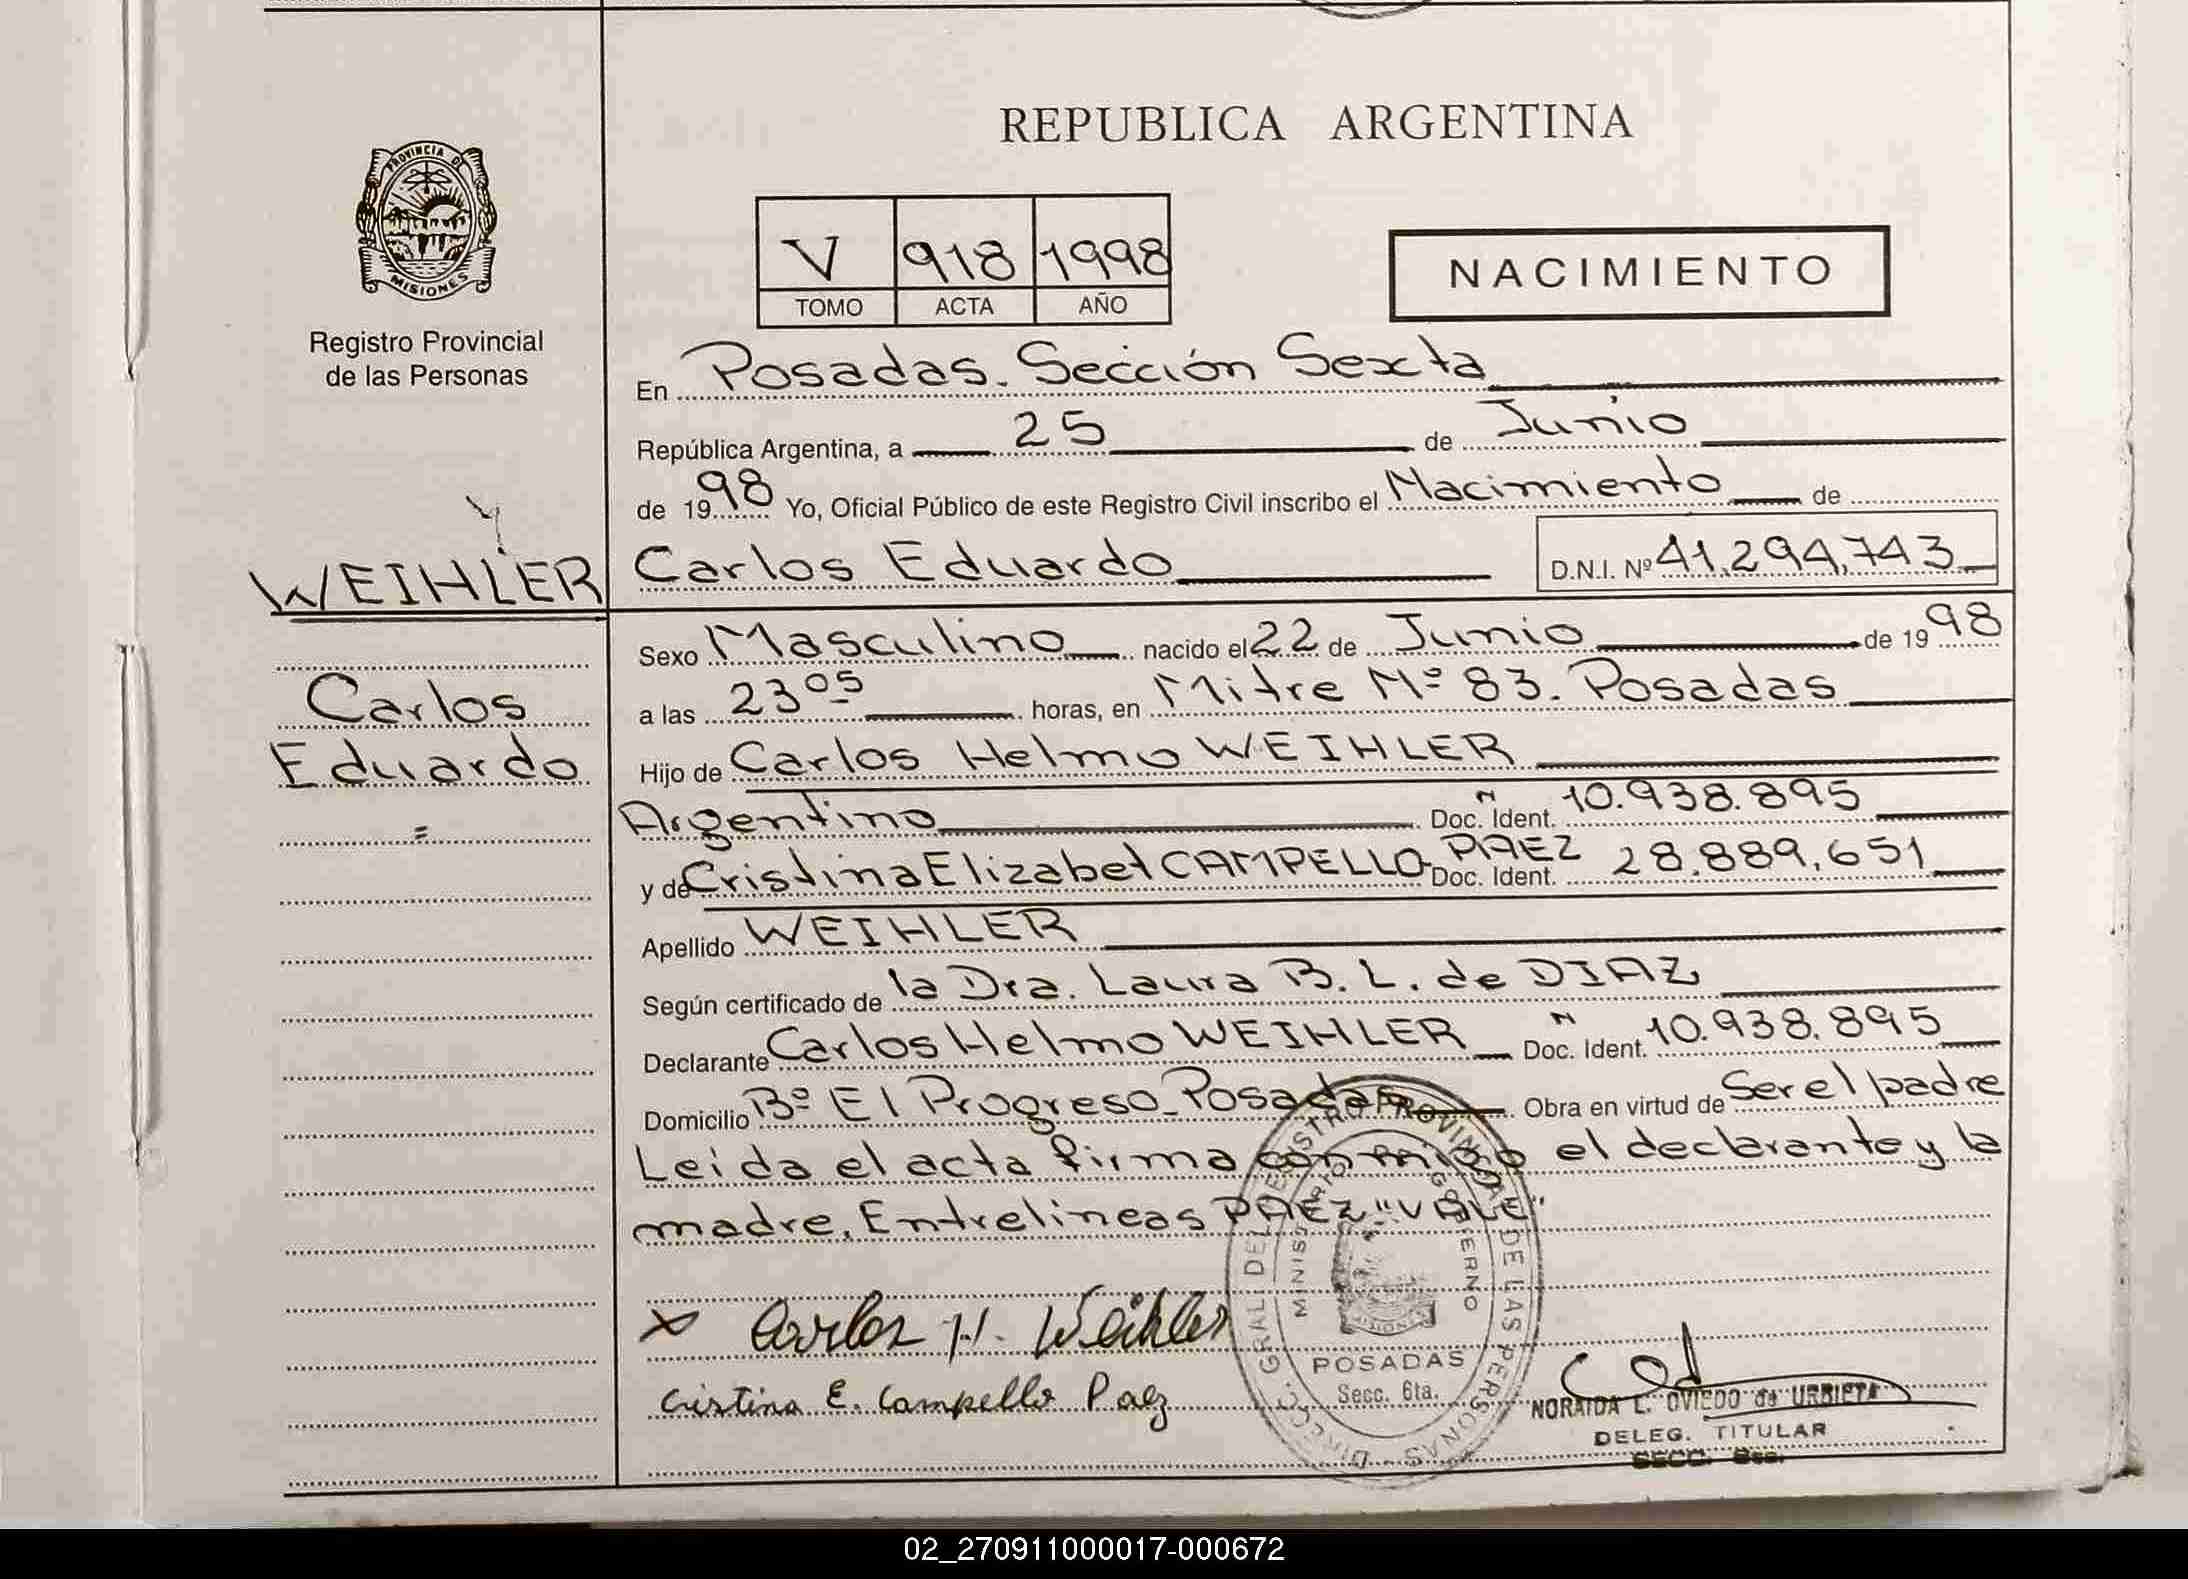 REPUBLICA ARGENTINA
PROVINCIA DE
MISIONES
Registro Provincial
de las Personas
V 918 1998
TOMO ACTA AÑO
NACIMIENTO
En Posadas. Sección Sexta
República Argentina, a 25 de Junio
de 1998 Yo, Oficial Público de este Registro Civil inscribo el Nacimiento de
WEIHLER Carlos Eduardo D.N.I. Nº 41.294.743
Sexo Masculino nacido el 22 de Junio de 1998
Carlos
a las 23 05 horas, en Mitre Nº 83. Posadas
Eduardo
Hijo de Carlos Helmo WEIHLER
Argentino Doc. Ident. 10.938.895
y de Cristina Elizabet CAMPELLO PAEZ Doc. Ident. 28.889.651
Apellido WEIHLER
Según certificado de la Dra. Laura B. L. de DIAZ
Declarante Carlos Helmo WEIHLER Doc. Ident. 10.938.895
Domicilio Bº El Progreso-Posadas Obra en virtud de Ser el padre
Leida el acta firma conmigo el declarante y la
madre. Entrelineas PAEZ "VALE"
DIRECC. GRAL. DEL REGISTRO PROVINCIAL DE LAS PERSONAS
MINISTERIO GOBIERNO
POSADAS
Secc. 6ta.
X Carlos H. Weihler
Cristina E. Campello Paez
NORAIDA L. OVIEDO de URBIETA
DELEG. TITULAR
SECC. 6ta.
02_270911000017-000672